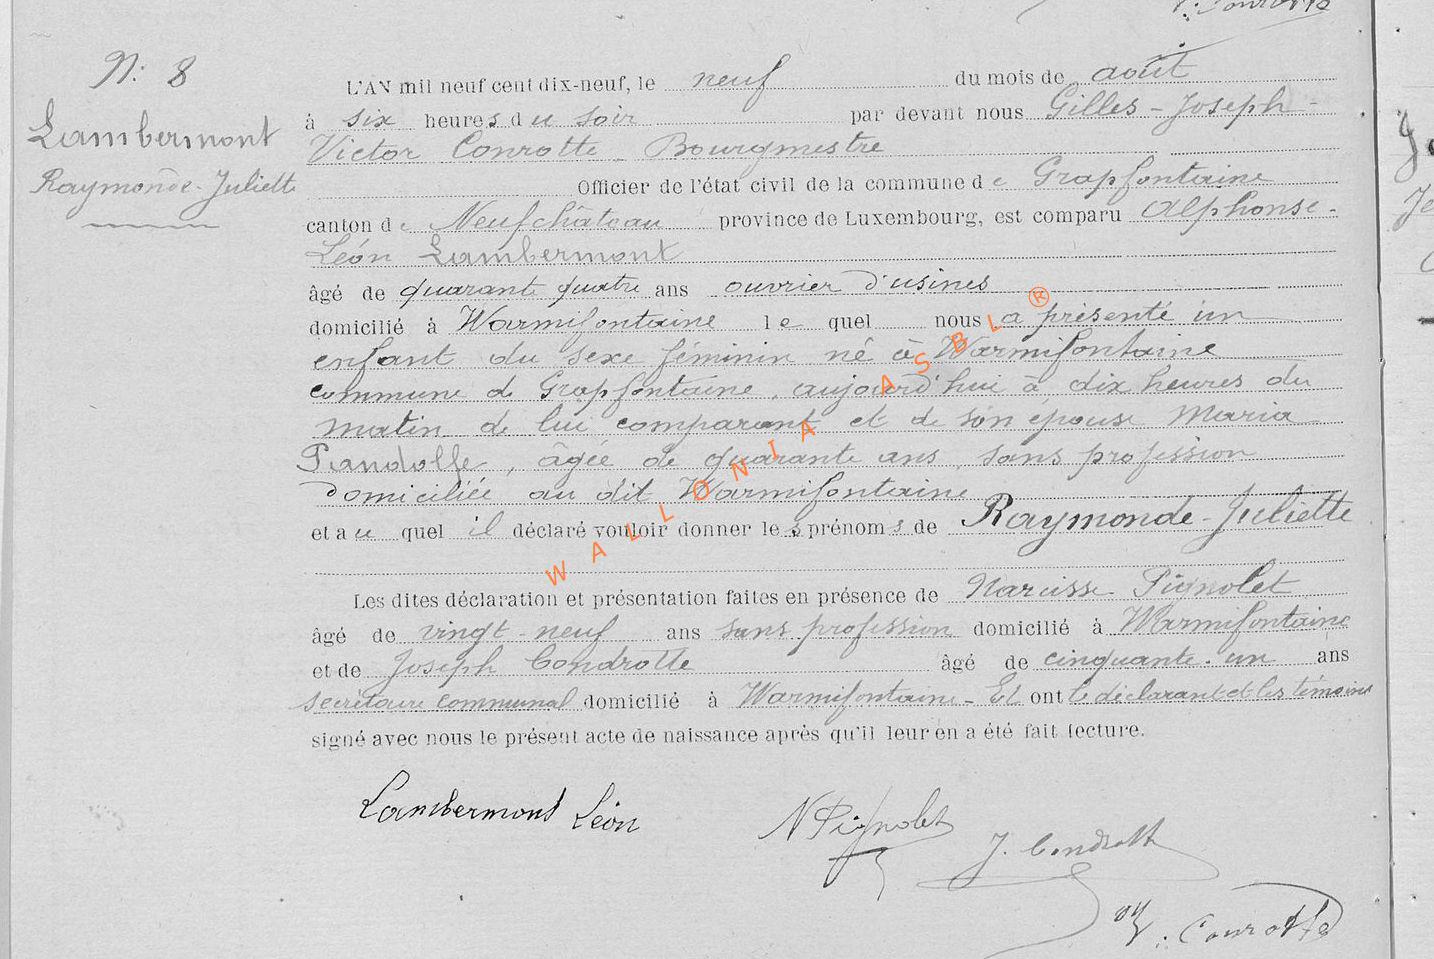 V. Conrotte
N: 8
Lambermont
Raymonde-Juliette
L'AN mil neuf cent dix-neuf, le neuf du mois de août
à six heures du soir par devant nous Gilles-Joseph-
Victor Conrotte Bourgmestre
Officier de l'état civil de la commune de Grapfontaine
canton de Neufchâteau province de Luxembourg, est comparu Alphonse-
Léon Lambermont
âgé de quarante quatre ans ouvrier d'usines
domicilié à Warmifontaine lequel nous a présenté un
enfant du sexe féminin né à Warmifontaine
commune de Grapfontaine, aujourd'hui à dix heures du
matin de lui comparant et de son épouse Maria
Pandolfe, âgée de quarante ans, sans profession
domiciliée au dit Warmifontaine
et auquel il déclaré vouloir donner les prénoms de Raymonde-Juliette
Les dites déclaration et présentation faites en présence de Narcisse Pignolet
âgé de vingt-neuf ans sans profession domicilié à Warmifontaine
et de Joseph Condrotte âgé de cinquante-un ans
secrétaire communal domicilié à Warmifontaine - Et ont le déclarant et les témoins
signé avec nous le présent acte de naissance après qu'il leur en a été fait lecture.
Lambermont Léon
N Pignolet
J. Condrotte
V. Conrotte
WALLONIA ASBL ®